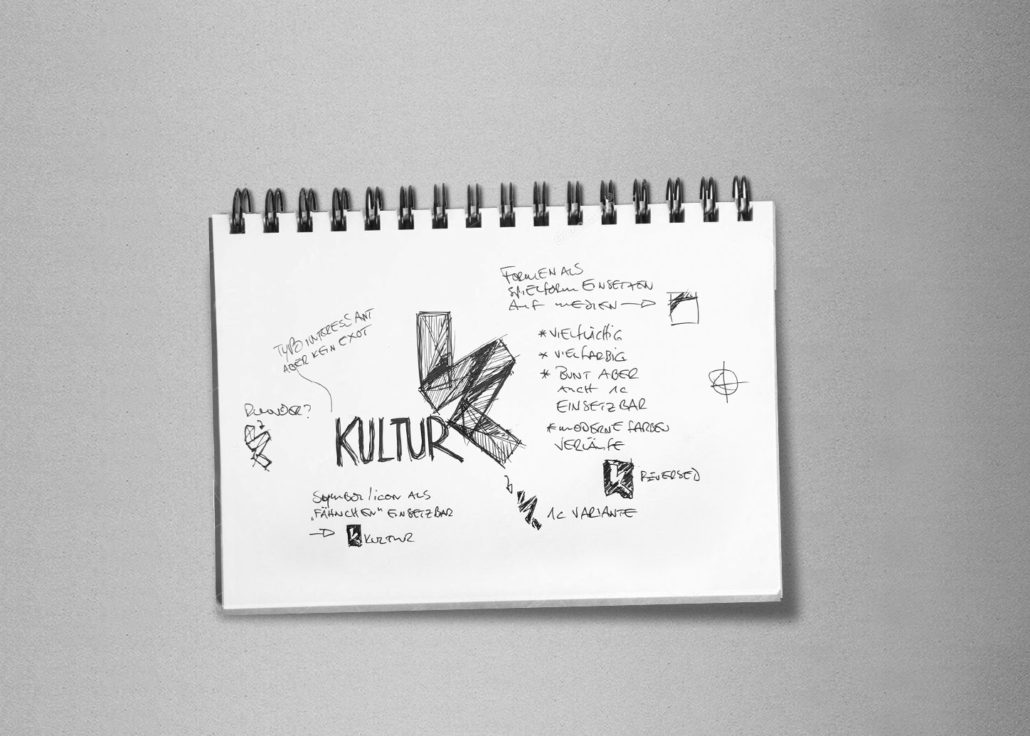 FORMEN ALS
SPIELFORM EINSETZEN
AUF MEDIEN
TYPO INTERESSANT
ABER KEIN EXOT
* VIELFLÄCHIG
* VIELFARBIG
* BUNT ABER
AUCH 1C
EINSETZBAR
* MODERNE FARBEN
VERLÄUFE
RUNDER?
KULTUR
REVERSED
SYMBOL/ICON ALS
„FÄHNCHEN" EINSETZBAR
KULTUR
1C VARIANTE